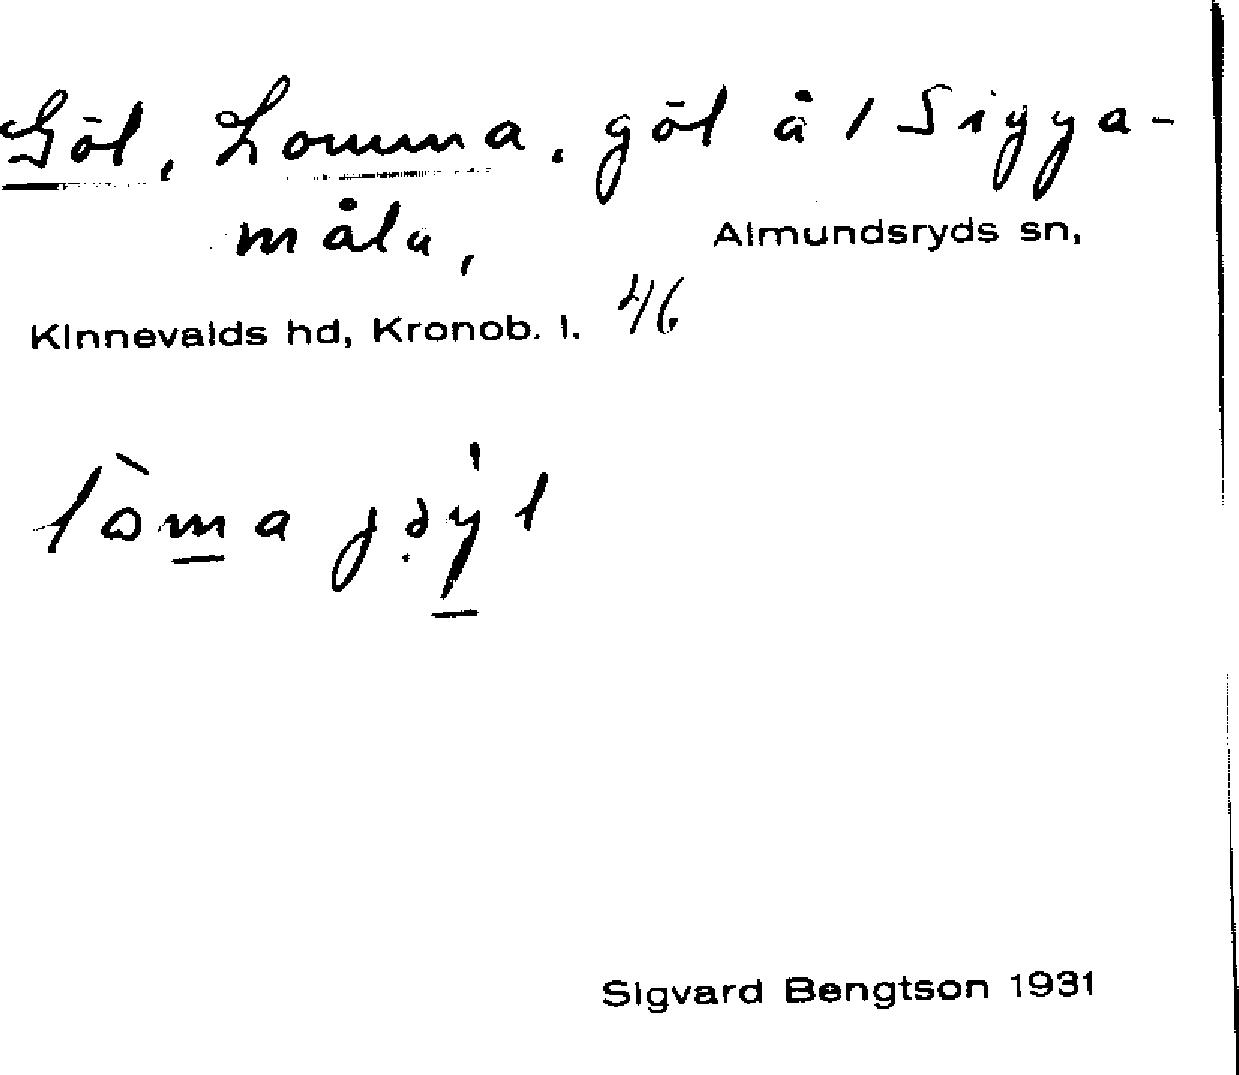 Göl, Lomma. göl å 1 Sigga-
måla, Almundsryds sn,
Kinnevalds hd, Kronob. l. 4/6
Sigvard Bengtson 1931